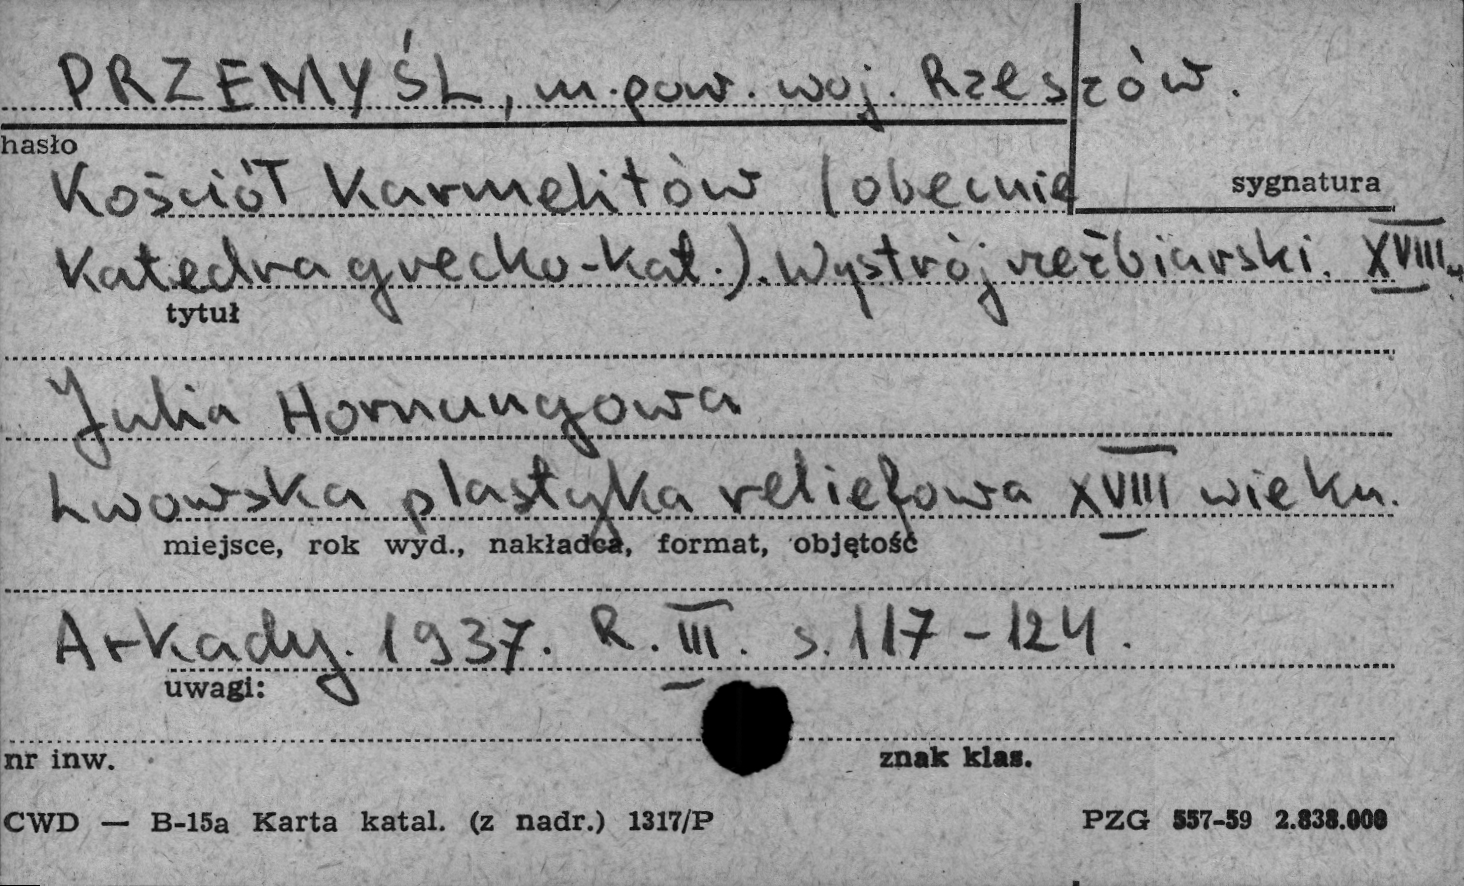 PRZEMYŚL, m. pow. woj. Rzeszów.
hasło
Kościół Karmelitów (obecnie
sygnatura
Katedra grecko-kat.). Wystrój rzeźbiarski. XVIII w.
tytuł
Julia Hornungowa
Lwowska plastyka reliefowa XVIII wieku.
miejsce, rok wyd., nakładca, format, objętość
Arkady. 1937. R. III. s. 117-124.
uwagi:
nr inw. znak klas.
CWD — B-15a Karta katal. (z nadr.) 1317/P PZG 557-59 2.838.000